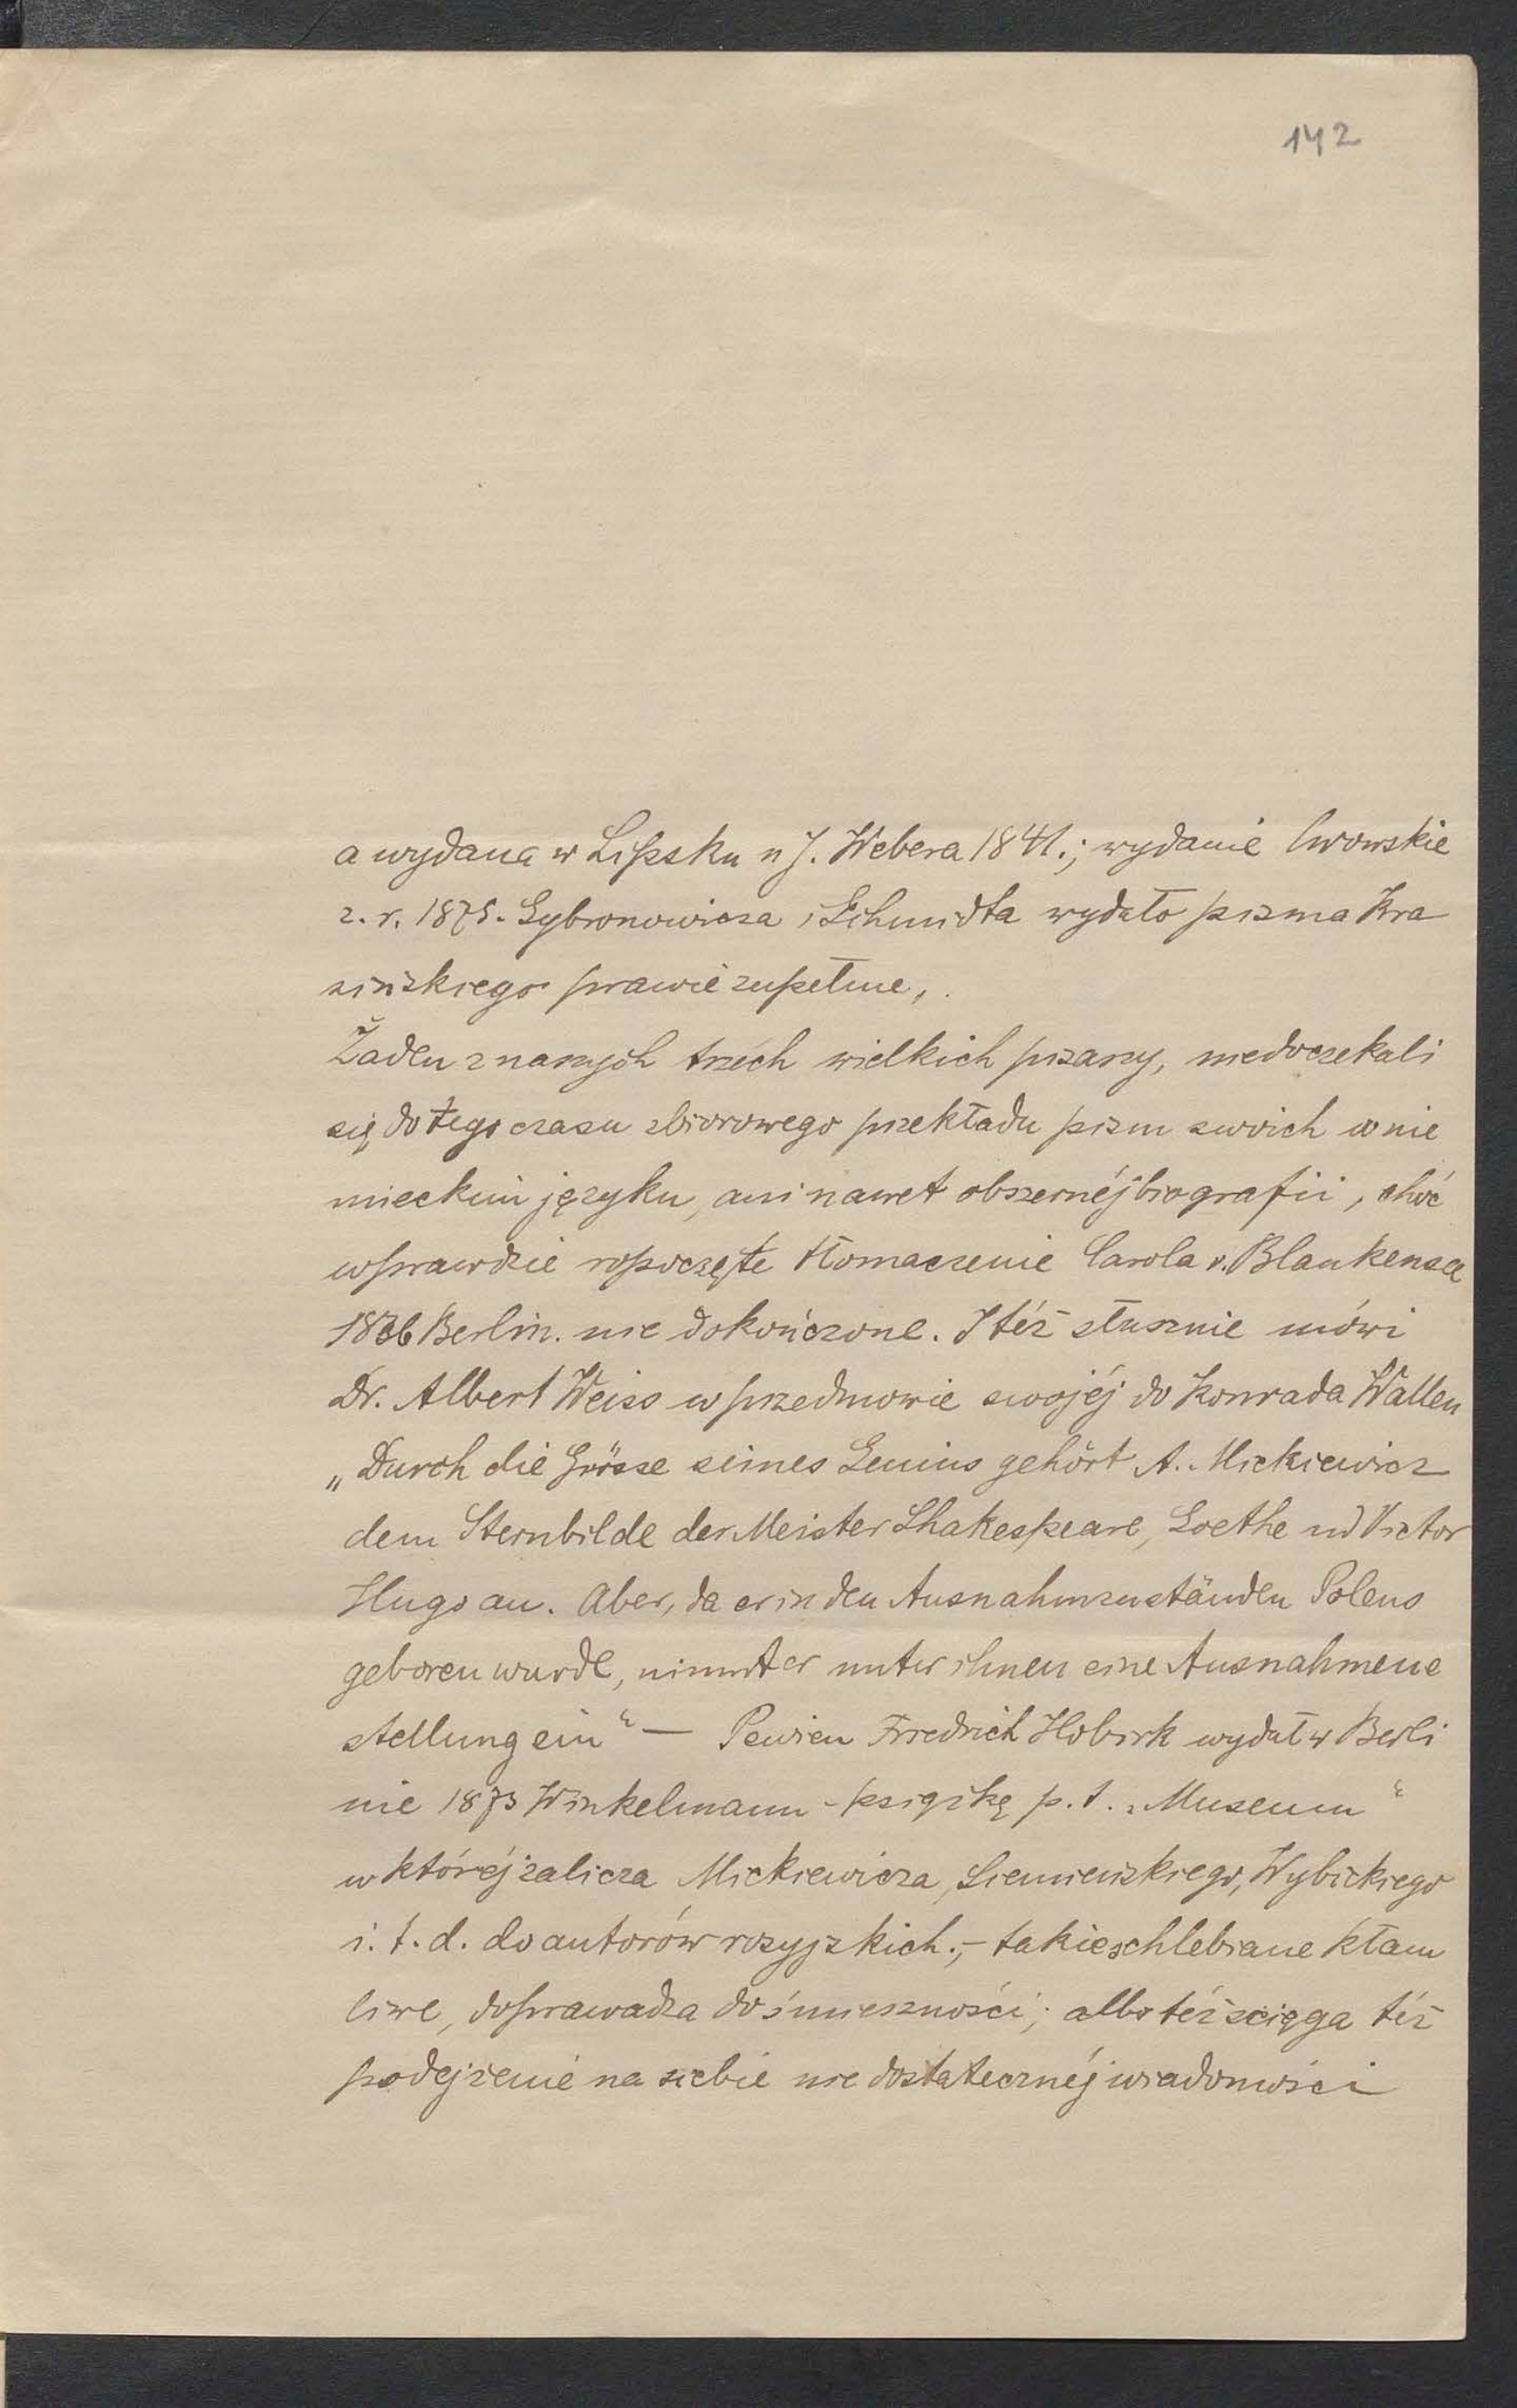 142
a wydana w Lipsku u J. Webera 1841.; wydanie lwowskie
z. r. 1875. Gybronowicza i Schmidta wydało pisma Kra
sińskiego prawie zupełne,.
Żaden z naszych trzech wielkich pisarzy, niedoczekali
się do tego czasu zbiorowego przekładu pism swoich w nie
mieckim języku, ani nawet obszernéj biografii, choć
wprawdzie rospoczęte tłomaczenie Carola v. Blankensee
1836 Berlin. nie dokończone. I téż słusznie mówi
Dr. Albert Weiss w przedmowie swojéj do Konrada Wallen
„Durch die Grösse seines Genius gehört A. Mickiewicz
dem Sternbilde der Meister Shakespeare, Goethe ud Victor
Hugo an. Aber, da er in den Ausnahmzuständen Polens
geboren wurde, nimmt er unter ihnen eine Ausnahmene
stellung ein“ — Pewien Friedrich Hobirk wydał w Berli
nie 1873 Winkelmann - książkę p. t. „Museum“
w któréj zalicza Mickiewicza, Siemieńskiego, Wybickiego
i. t. d. do autorów rosyjskich.;- takie schlebiane kłam
liwe, doprawadza do śmieszności; albo téż sciąga téż
podejrzenie na siebie nie dostatecznéj wiadomości